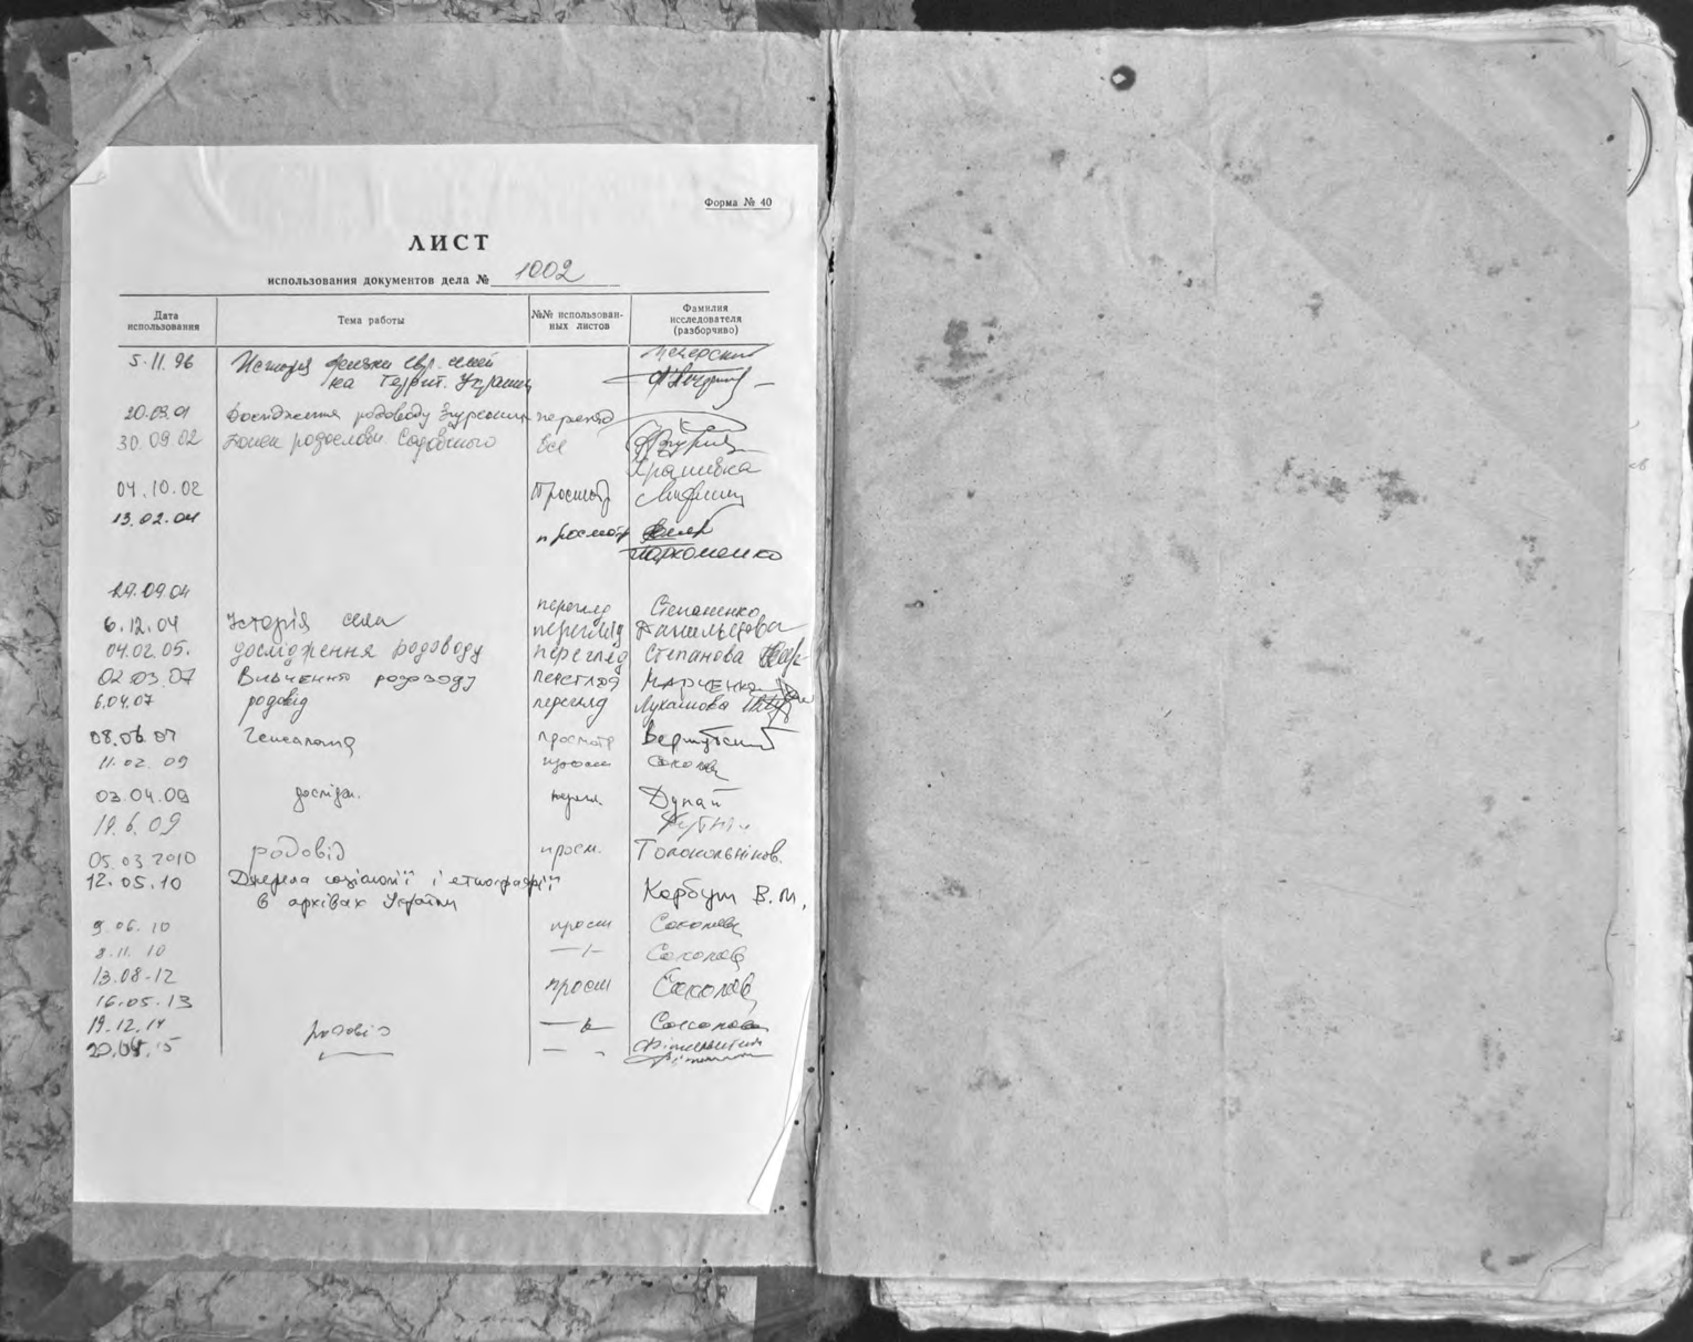 Форма № 40
ЛИСТ
использования документов дела № 1002
Дата использования
Тема работы
№№ использован-ных листов
Фамилия исследователя (разборчиво)
5.11.96 История евр. семей
на террит. Украины
20.03.01 Дослідження родоводу перегляд
30.09.02 родословн. Садовного все
Храмивка
04.10.02 Просмотр
13.02.04
просмотр
Пархоменко
29.09.04
перегляд Степаненко
6.12.04 Історія села перегляд Данильцова
04.02.05. дослідження родоводу перегляд Степанова
02.03.07 Вивчення родоводу перегляд Марченко
6.04.07 родовід перегляд Лукашова
08.06.07 Генеалогия просмотр
11.02.09 просм Соколова
03.04.09 дослідж. перегл. Дупай
19.6.09
05.03.2010 родовід просм. Толокольніков.
12.05.10 Джерела соціології і етнографії
в архівах України Корбут В.М.
9.06.10 просм Соколова
8.11.10 —//— Соколова
13.08.12
просм Соколова
16.05.13
19.12.14 родовід —//— Соколова
20.08.15